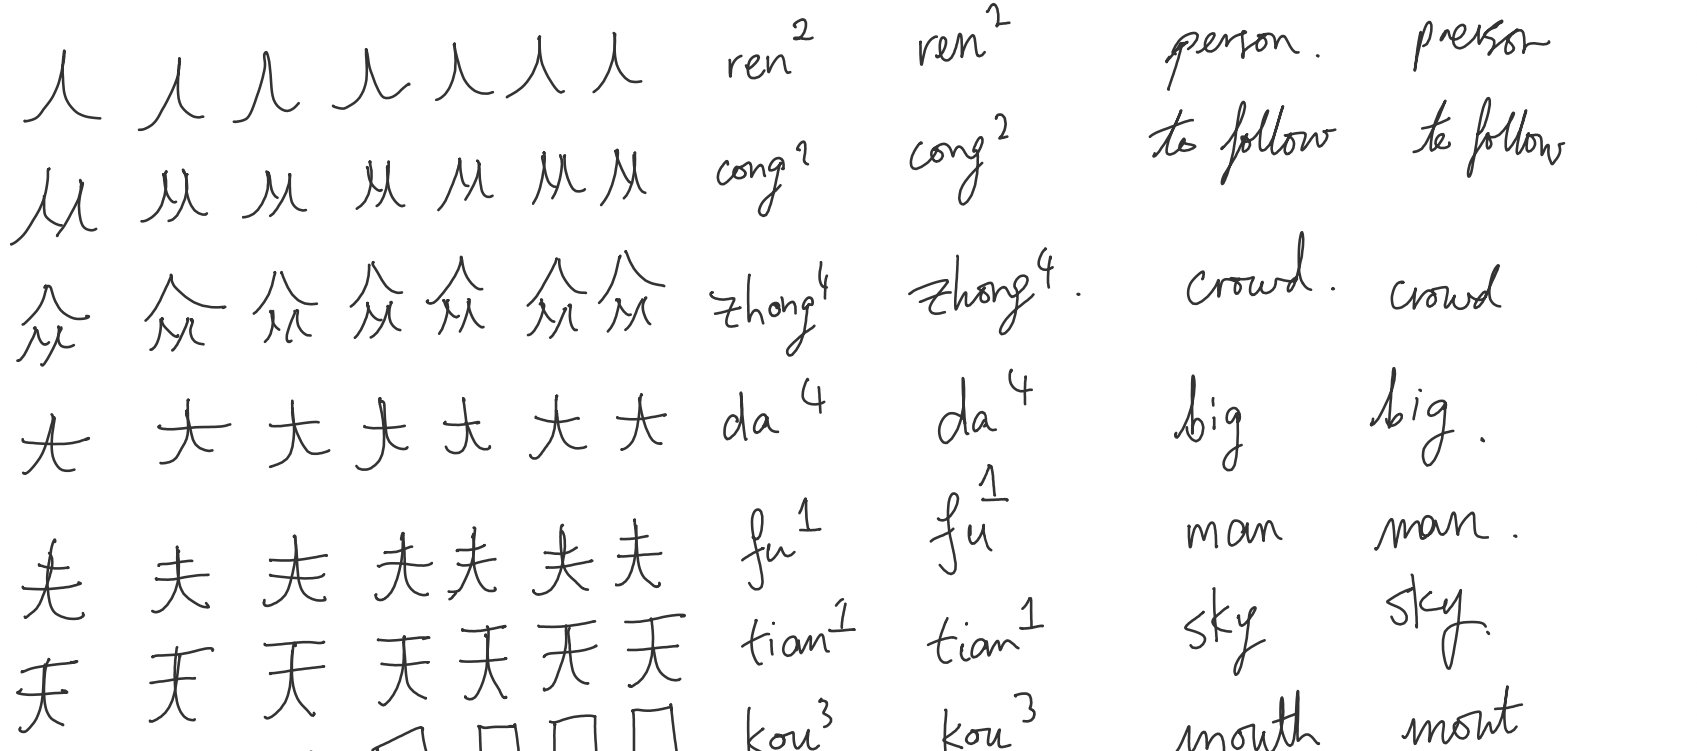 人 人 人 人 人 人 人 ren² ren² person. person
从 从 从 从 从 从 从 cong² cong² to follow to follow
众 众 众 众 众 众 众 zhong⁴ zhong⁴. crowd. crowd
大 大 大 大 大 大 大 da⁴ da⁴ big big.
夫 夫 夫 夫 夫 夫 夫 fu¹ fu¹ man man.
天 天 天 天 天 天 天 tian¹ tian¹ sky sky.
口 口 口 口 kou³ kou³ mouth mout